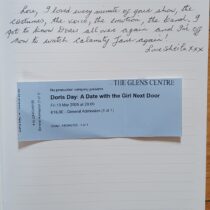 love, I loved every minute of your show, the
costumes, the voice, the emotion, the band. I
got to know Doris all over again and I'm off
now to watch Calamity Jane again!
Love Sheila xxx
THE GLENS CENTRE
production company presents
Doris Day: A Date with the Girl Next Door
Fri 13 Mar 2026 at 20:00
General Admission (1 of 1)